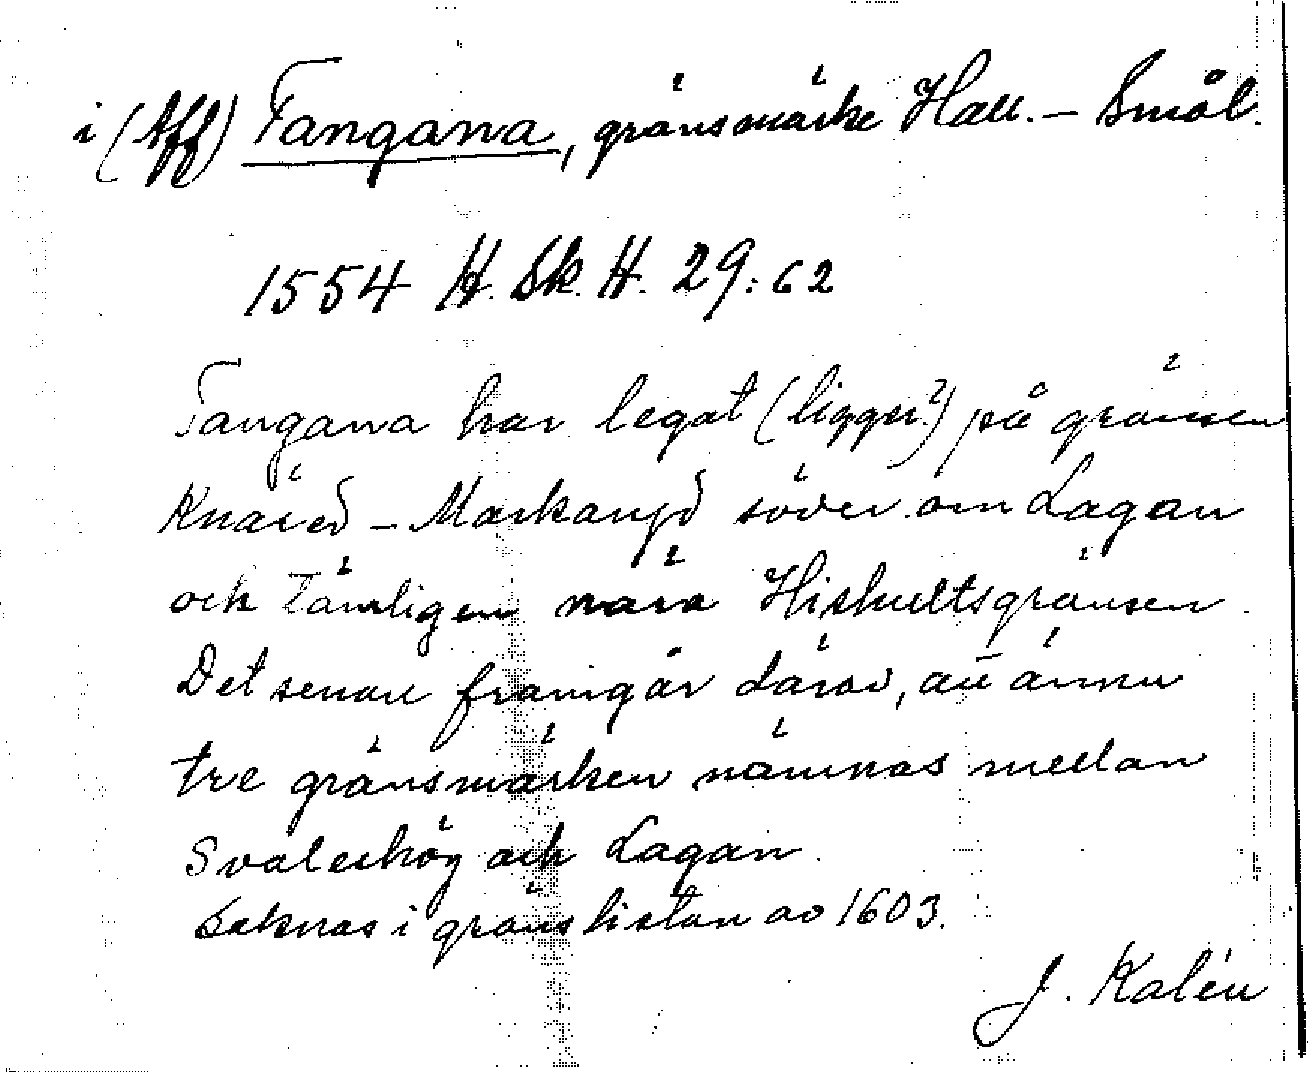 i (Aff) Tangana, gränsmärke Hall. – Smål.
1554 H. Sk. H. 29:62
Tangana har legat (ligger?) på gränsen
Knäred – Markaryd söder om Lagan
och tämligen nära Hishultsgränsen.
Det senare framgår därav, att ännu
tre gränsmärken nämnas mellan
Svalehög och Lagan.
Saknas i gränslistan av 1603.
J. Kalén